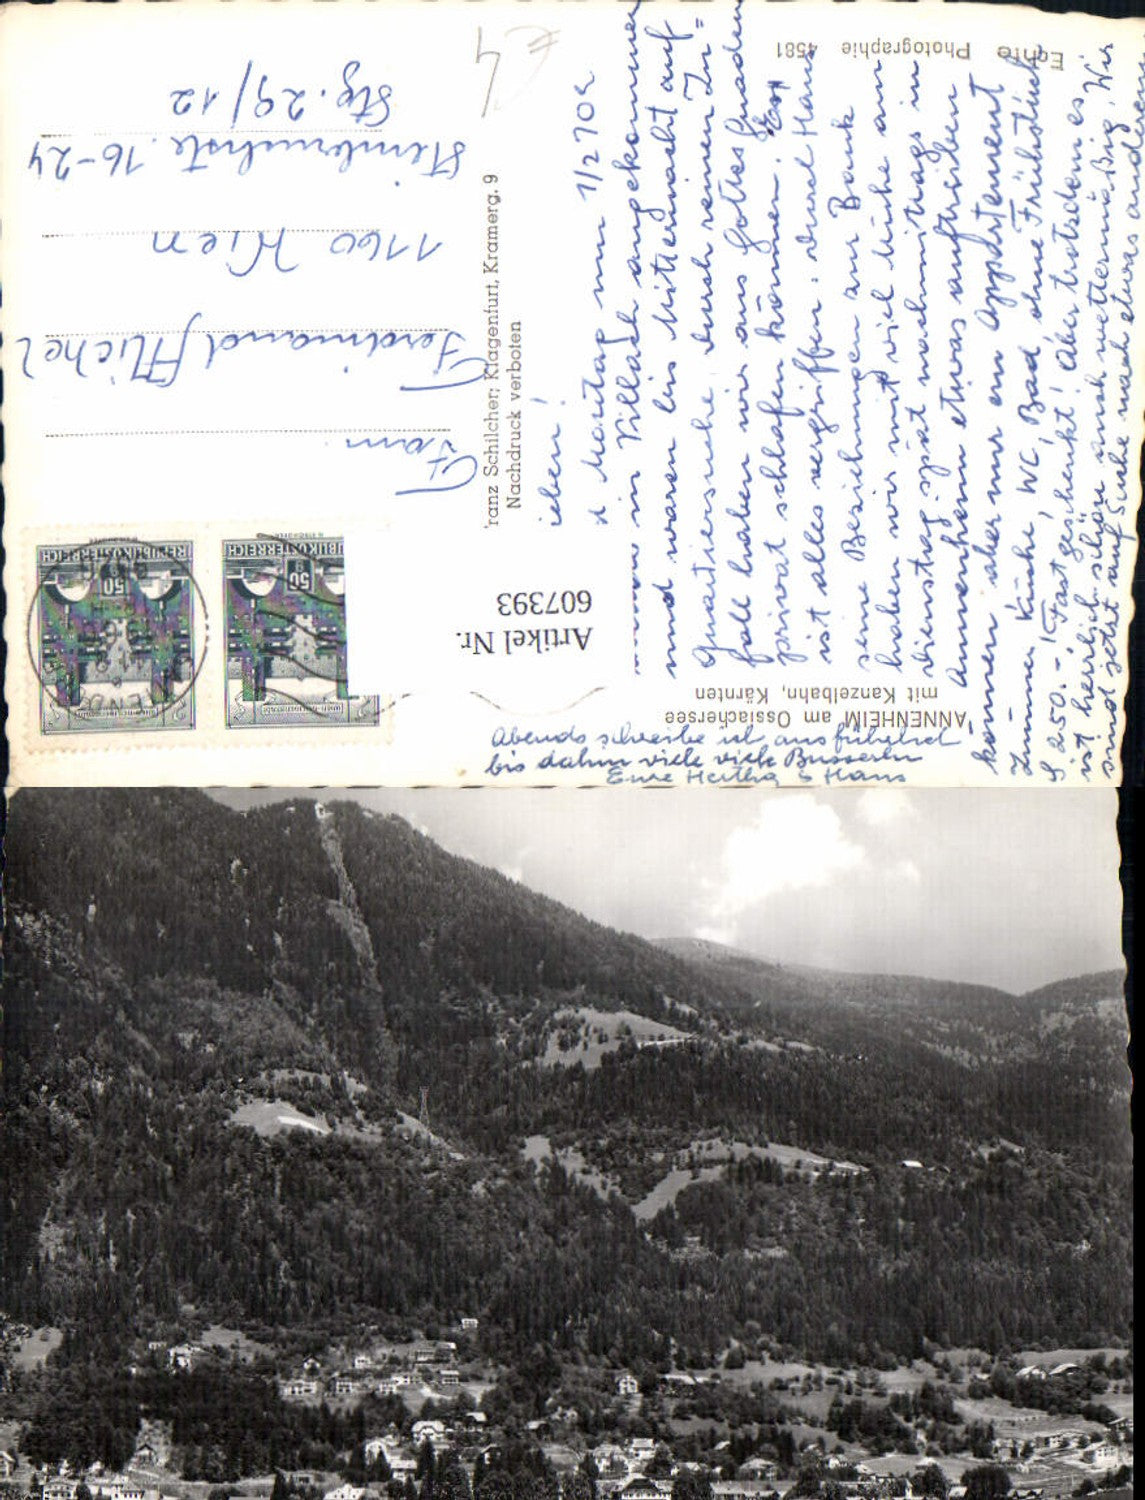 Echte Photographie 4581
€ 4
ANNENHEIM am Ossiachersee
mit Kanzelbahn, Kärnten
Franz Schilcher, Klagenfurt, Kramerg. 9
Nachdruck verboten
Artikel Nr.
607393
REPUBLIK ÖSTERREICH
50
REPUBLIK ÖSTERREICH
50
Fam.
Ferdinand Michel
1160 Wien
Steinbruchstr. 16-24
Stg. 29/12
ieben!
Montag um 1/2 70
in Villach angekommen
und waren bis Mitternacht auf
Quartiersuche, durch reinen Zu=
fall haben wir aus Gottes Gnaden
privat schlafen können. Es
ist alles vergriffen, durch Hans
seine Beziehungen zur Bank
haben wir mit viel Mühe am
Dienstag spät nachmittags in
Annenheim etwas auftreiben
können aber nur ein Appartement
Zimmer Küche, WC, Bad, ohne Frühstück
S 250.-! Fast geschenkt! Aber trotzdem es
ist herrlich schön auch wettermäßig. Wir
sind jetzt auf Suche nach etwas anderem
Abends schreibe ich ausführlich
bis dahin viele viele Busserln
Eure Hertha & Hans